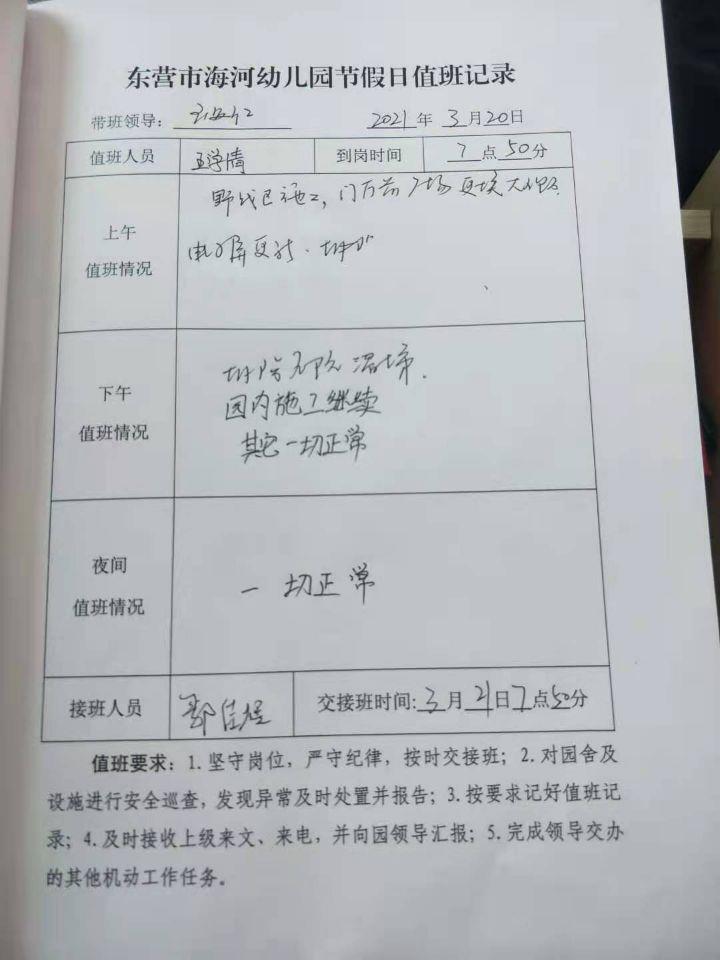 东营市海河幼儿园节假日值班记录
带班领导： 2021年 3月20日
值班人员 王学情 到岗时间 7点50分
上午
值班情况
野战区施工，门厅前广场
电子屏更新
下午
值班情况
园内施工继续
其它一切正常
夜间
值班情况
一切正常
接班人员 交接班时间：3月21日7点50分
值班要求：1.坚守岗位，严守纪律，按时交接班；2.对园舍及
设施进行安全巡查，发现异常及时处置并报告；3.按要求记好值班记
录；4.及时接收上级来文、来电，并向园领导汇报；5.完成领导交办
的其他机动工作任务。